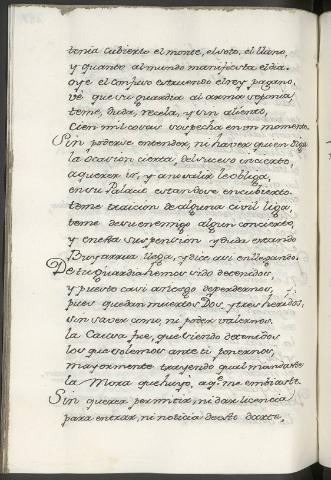 tenia cubierto el monte, el soto, el llano,
y quanto al mundo manifiesta el dia.
oye el confuso estruendo el rey pagano,
vè que su guardia al arma se ponia,
teme, duda, recela, y sin aliento,
cien mil cosas sospecha en un momento
Sin poderse entender, ni haver quien diga
la ocasion cierta, del suceso incierto,
a querer ir, y a no salir le obliga,
en su Palacio estandose encubierto.
teme traicion de alguna civil liga,
teme de su enemigo algun concierto,
y en esta suspension y duda estando
llega, y dice asi en llegando.
De tu guardia hemos sido detenidos,
y puesto casi a riesgo de perdernos,
pues quedan muertos Dos, y tres heridos,
sin saver como, ni poder valernos.
la Causa fue, que siendo detenidos
los que solemos ante ti ponernos,
mayormente trayendo qual mandaste
la Mora que huyò, a q.e me embiaste.
Sin querer permitir, ni dar licencia
para entrar, ni noticia de esto darte,